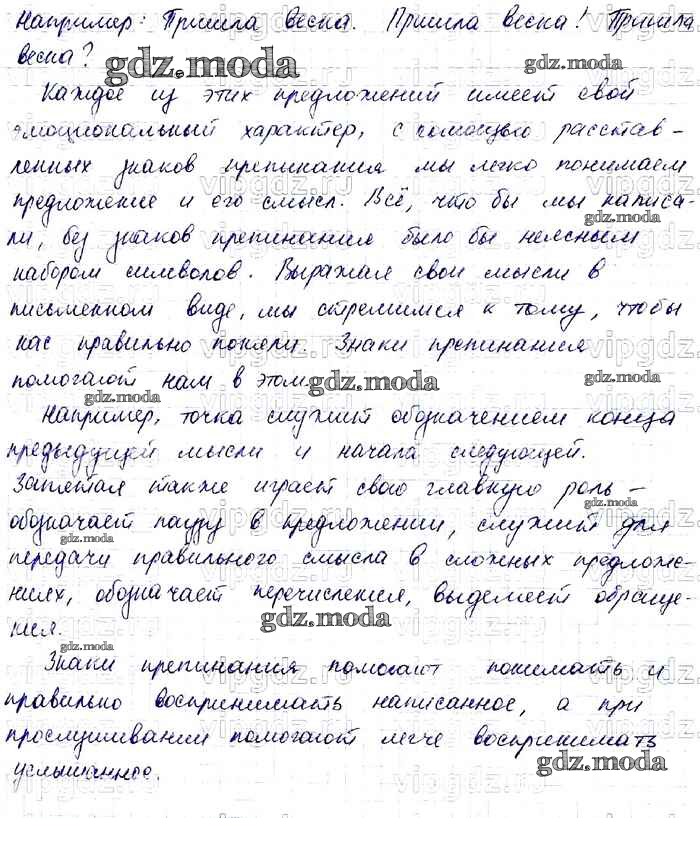 Например: Пришла весна. Пришла весна! Пришла
весна?
Каждое из этих предложений имеет свой
эмоциональный характер, с помощью расстав-
ленных знаков препинания мы легко понимаем
предложение и его смысл. Всё, что бы мы написа-
ли, без знаков препинания было бы неясным
набором символов. Выражая свои мысли в
письменном виде, мы стремимся к тому, чтобы
нас правильно поняли. Знаки препинания
помогают нам в этом.
Например, точка служит обозначением конца
предыдущей мысли и начала следующей.
Запятая также играет свою главную роль -
обозначает паузу в предложении, служит для
передачи правильного смысла в сложных предложе-
ниях, обозначает перечисления, выделяет обраще-
ния.
Знаки препинания помогают понимать и
правильно воспринимать написанное, а при
прослушивании помогают легче воспринимать
услышанное.
gdz.moda
vipgdz.ru